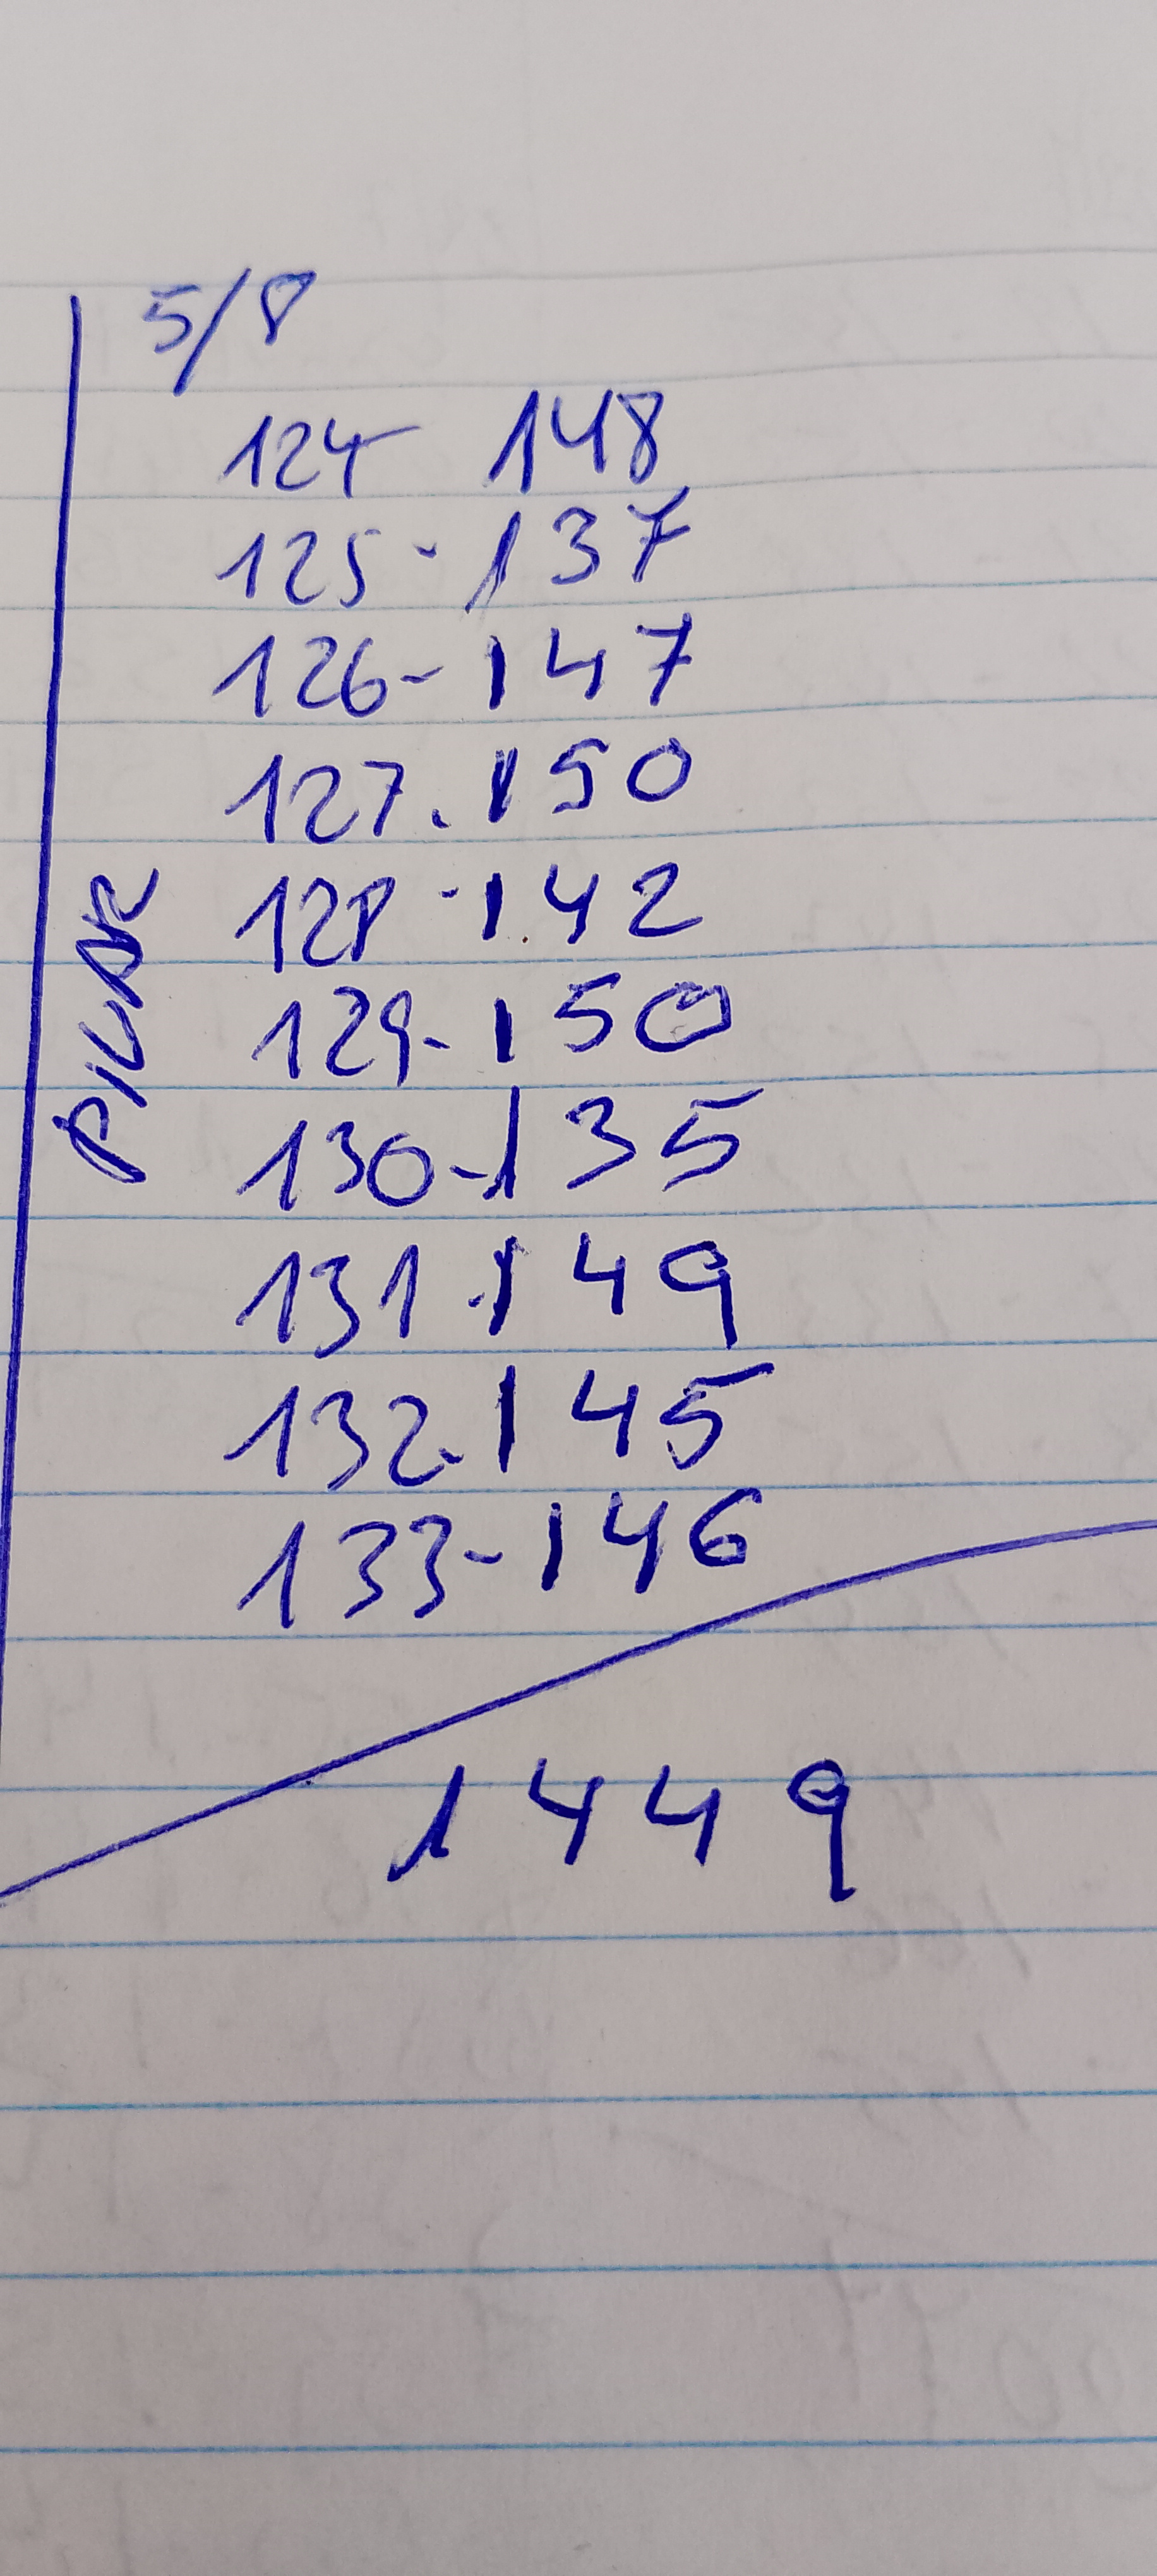 5/8
124- 148
125- 137
126- 147
127. 150
128 - 142
129- 150
130- 135
131 - 149
132. 145
133- 146
1449